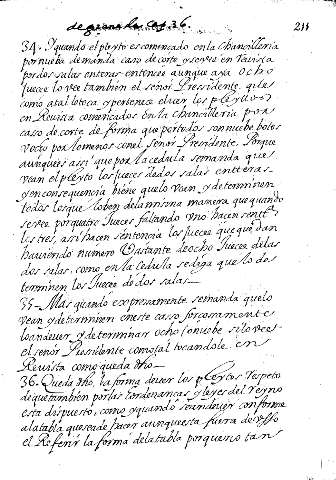 de grana la Cap. 36. 211
34. Y quando el pleyto es comencado en la Chancilleria
por nueba demanda caso de corte, y se vee en Revista
por dos salas enteras entonces aunque aya ocho
Jueces lo vee tambien el señor Pressidente que es
como a tal le toca y pertenece el ver los pleytos
en Revista comencados en la Chancilleria por
caso de corte de forma que por todos son nuebe botos
y ocho por lo menos con el señor Presidente. Porque
aunque es assi que por la cedula se manda que
vean el pleyto los Jueces de dos salas entteras
y en consequencia biene que lo vean, y determinen
todos los que lo ben de la misma manera que quando
se vee por quatro Jueces faltando uno hacen sentta
los tres, assi hacen sentencia los Jueces que quedan
haviendo numero bastante de ocho Jueces de las
dos salas, como en la cedula se diga que lo de
terminen los Jueces de dos salas
35. Mas quando expresamente se manda que lo
vean y determinen en este caso forcosamente
lo an de ver y determinar ocho o nuebe si lo vee
el señor Presidente como tal tocandole en
Revista como queda dho
36. Queda dho, la forma de ver los pleytos respeta
de que tambien por las hordenancas y leyes del reyno
esta dispuesto, como y quando se an de ver conforme
a la tabla que se a de hacer aunque esta fuera de uso
el Referir la forma de la tabla porque no tan